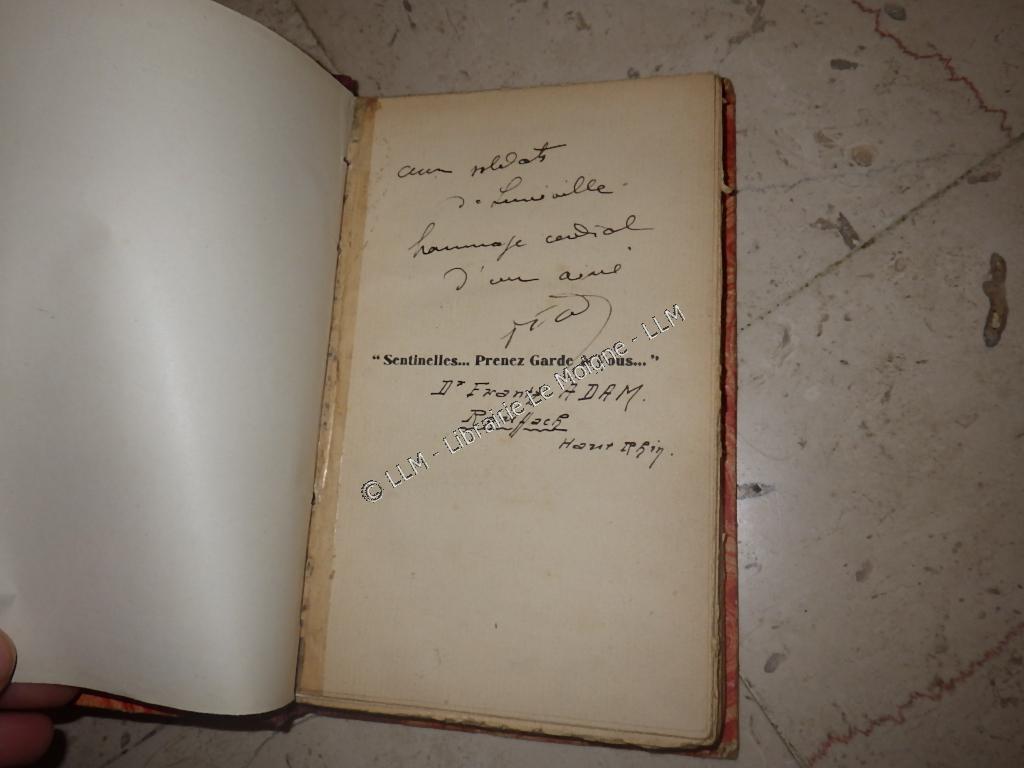 aux soldats
de Lunéville
hommage cordial
d'un ainé
"Sentinelles... Prenez Garde à vous..."
Dr Frantz ADAM.
Rouffach
Haut Rhin.
© LLM - Librairie Le Moigne - LLM